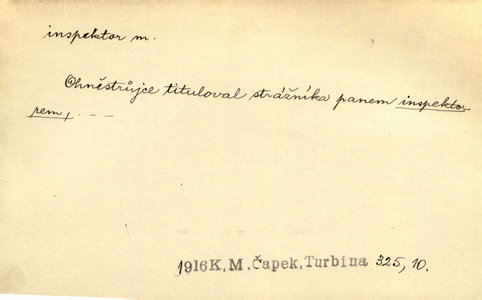 inspektor m.
Ohněstrůjce tituloval strážníka panem inspekto-
rem, - - -
1916 K. M. Čapek, Turbina 325, 10.